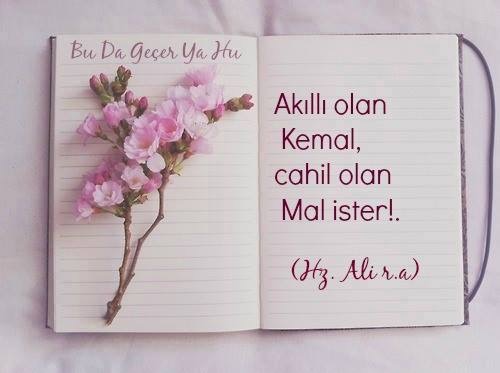 Bu Da Geçer Ya Hu
Akıllı olan
Kemal,
cahil olan
Mal ister!.
(Hz. Ali r.a)